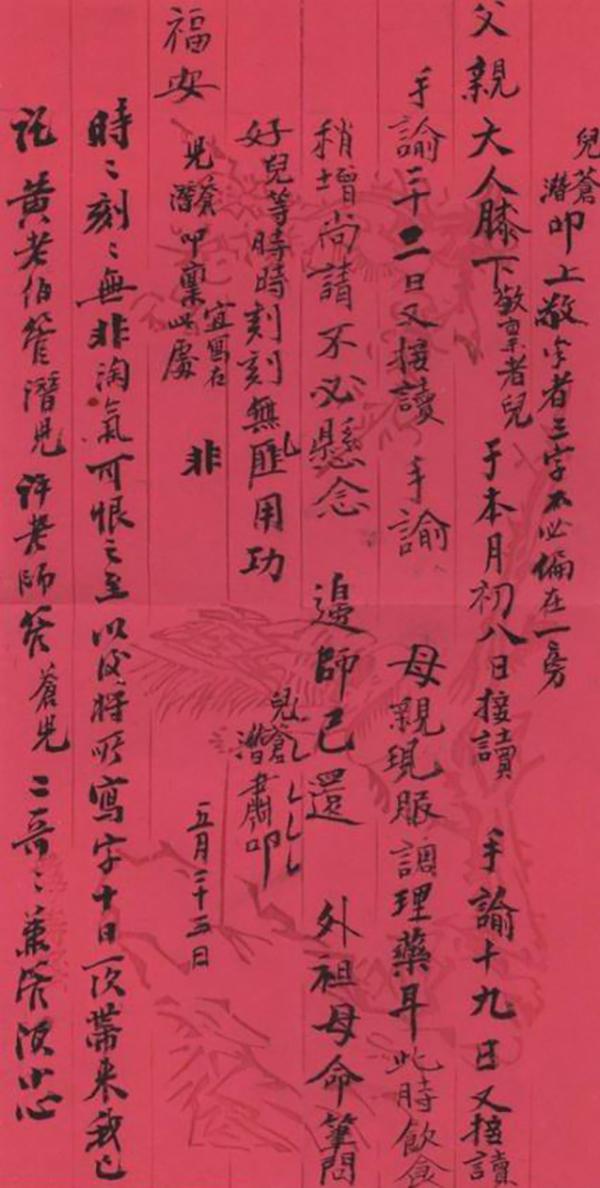 兒蒼潛叩上敬字者三字不必偏在一旁
父親大人膝下敬稟者兒于本月初八日接讀 手諭十九日又接讀
手諭二十二日又接讀 手諭 母親現服調理藥耳此時飲食
稍增尚請不必懸念 邊師已還 外祖母命筆問
好兒等時時刻刻無匪用功 兒蒼潛肅叩
福安 兒蒼潛叩稟此處宜寫在 非 五月二十五日
時〻刻〻無非淘氣可恨之至以後將所寫字十日一次帶來我已
託黃老伯管潛兒許老師管蒼兒二哥〻兼管須小心